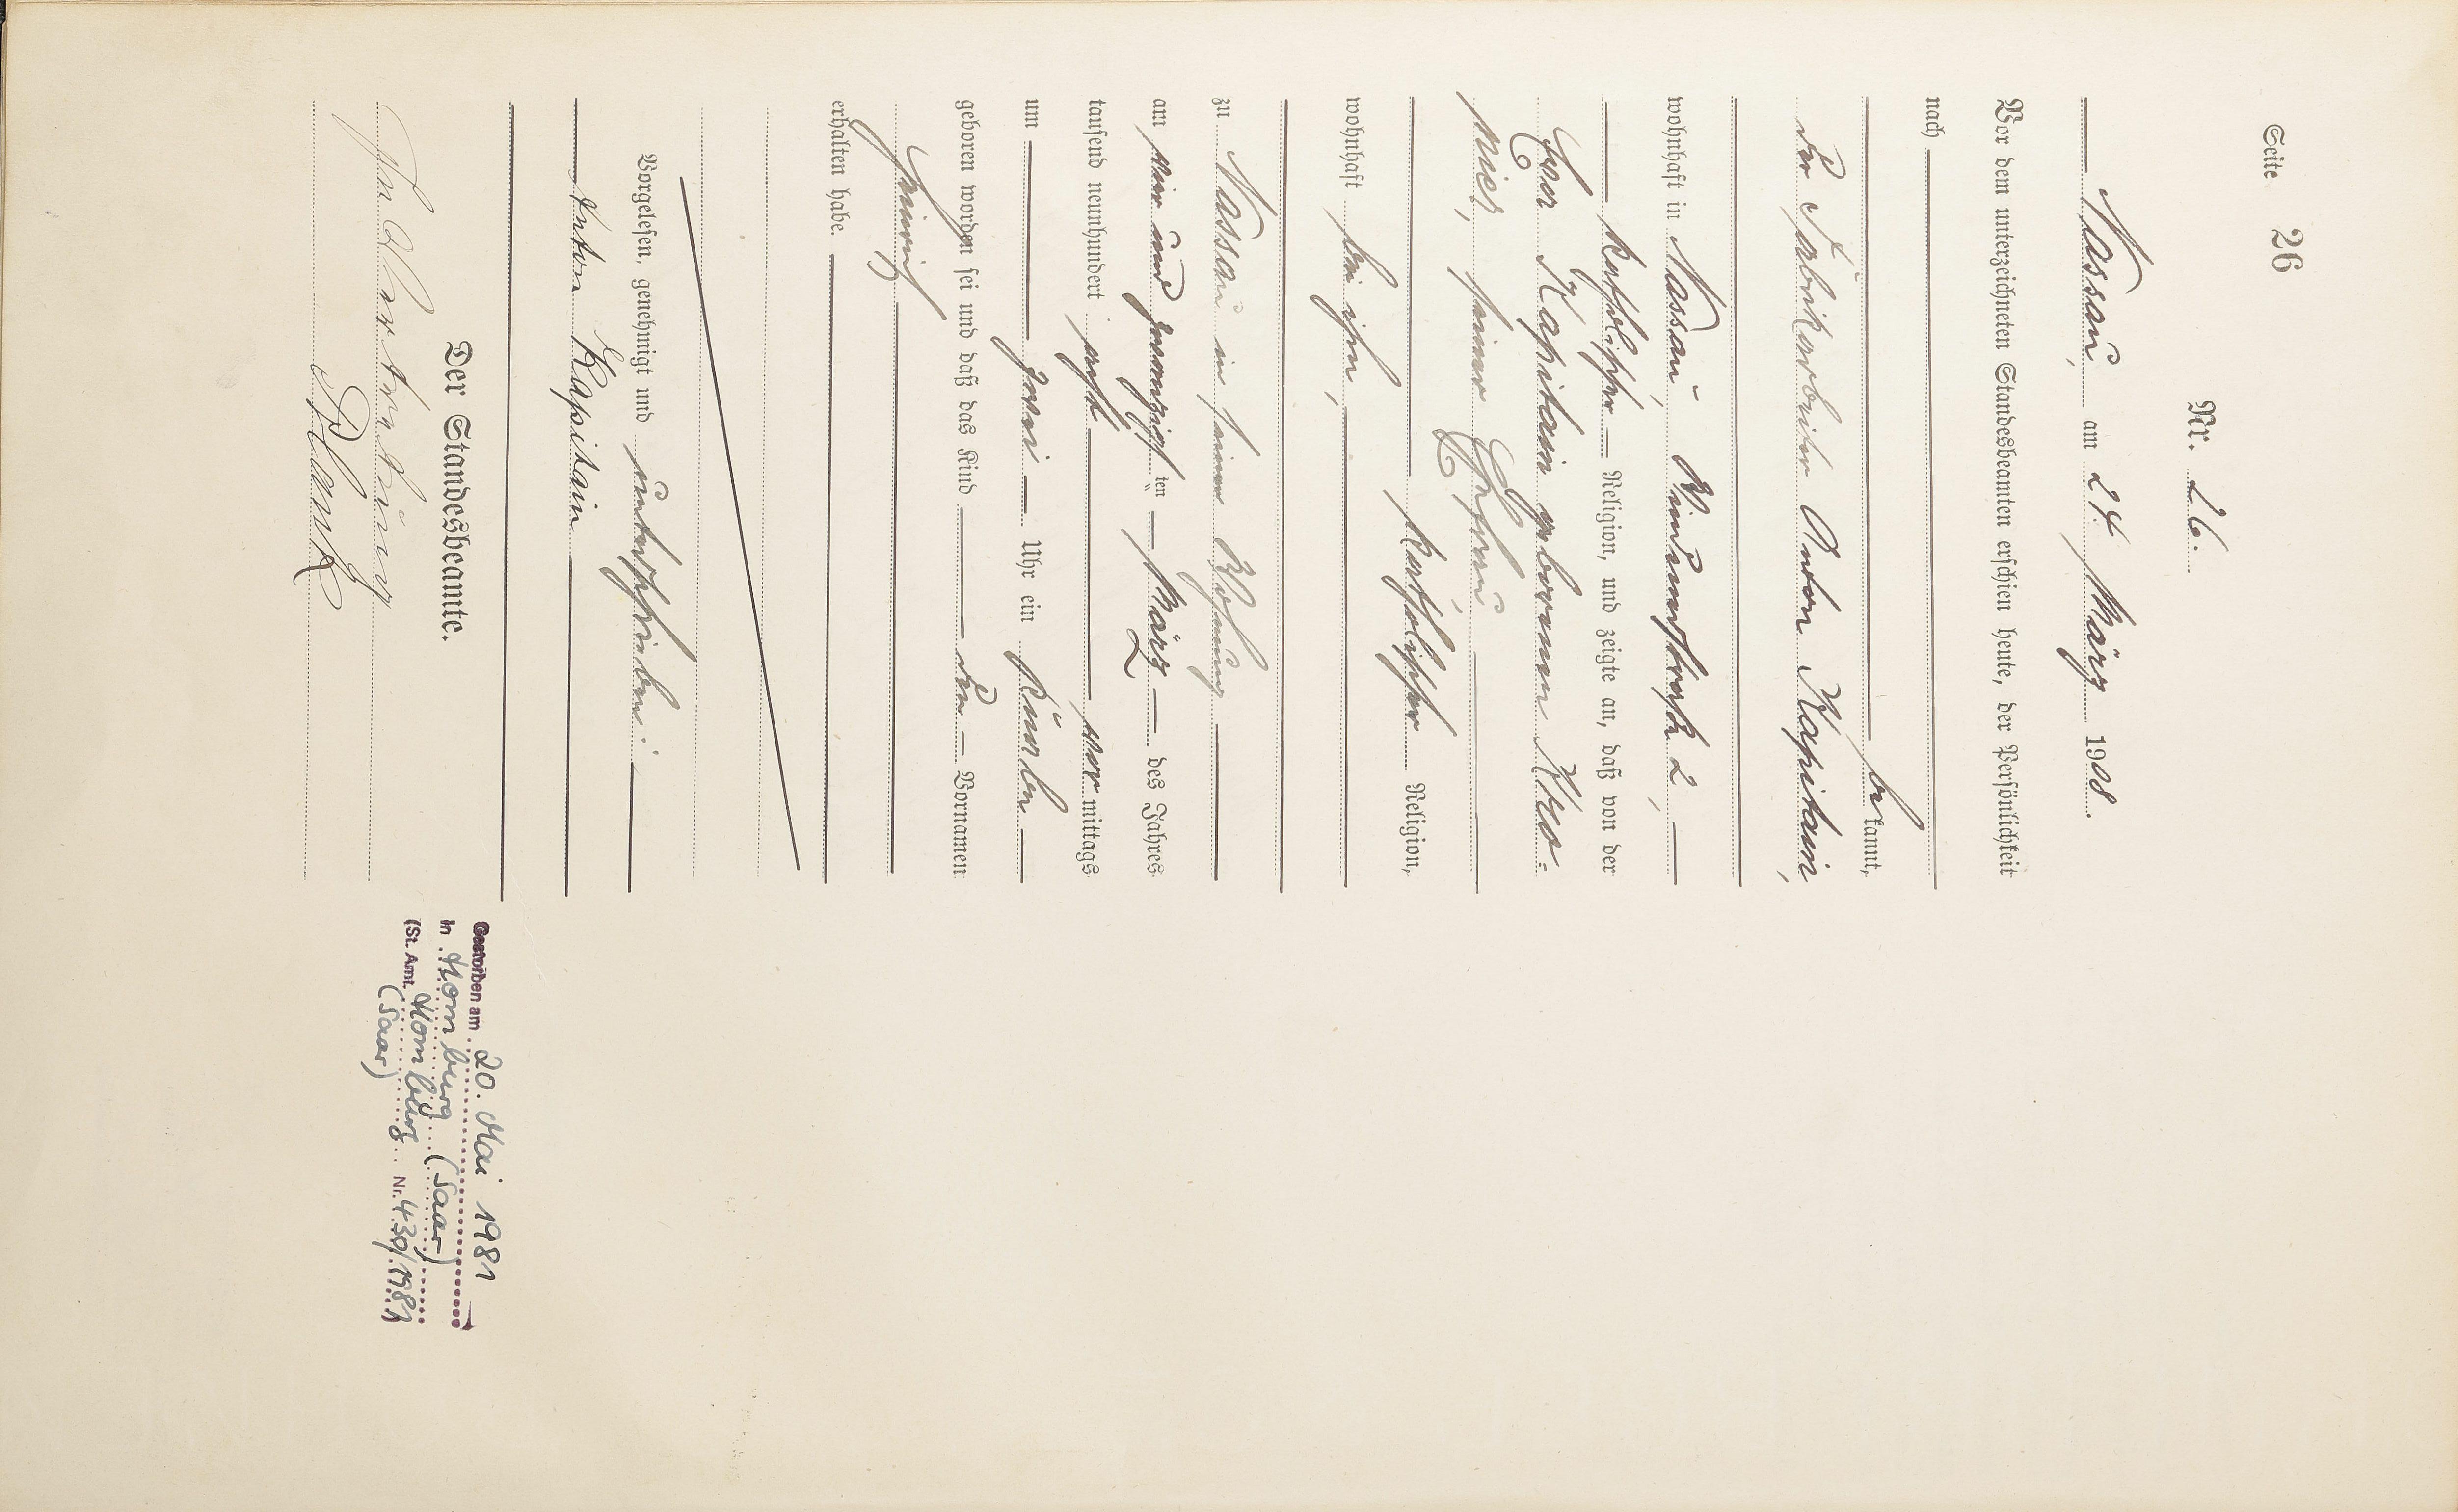 Seite 26
Nr. 26.
Nassau, am 24 März 1908.
Vor dem unterzeichneten Standesbeamten erschien heute, der Persönlichkeit
nach
be kannt,
der Fabrikarbeiter Anton Kapitain,
wohnhaft in Nassau, Windenstraße 2,
katholischer Religion, und zeigte an, daß von der
Kapitain geborenen
seiner Ehefrau
katholischer Religion,
wohnhaft bei ihm,
zu Nassau in seiner Wohnung
am vier und zwanzigsten März des Jahres
tausend neunhundert acht vor mittags
um zwei Uhr ein Knabe
geboren worden sei und daß das Kind den Vornamen
Heinrich
erhalten habe.
Vorgelesen, genehmigt und unterschrieben:
Anton Kapitain
Der Standesbeamte.
In Vertretung
Plank
Gestorben am 20. Mai 1981
in Homburg (Saar)
(St. Amt. Homburg Nr. 430/1981)
(Saar)